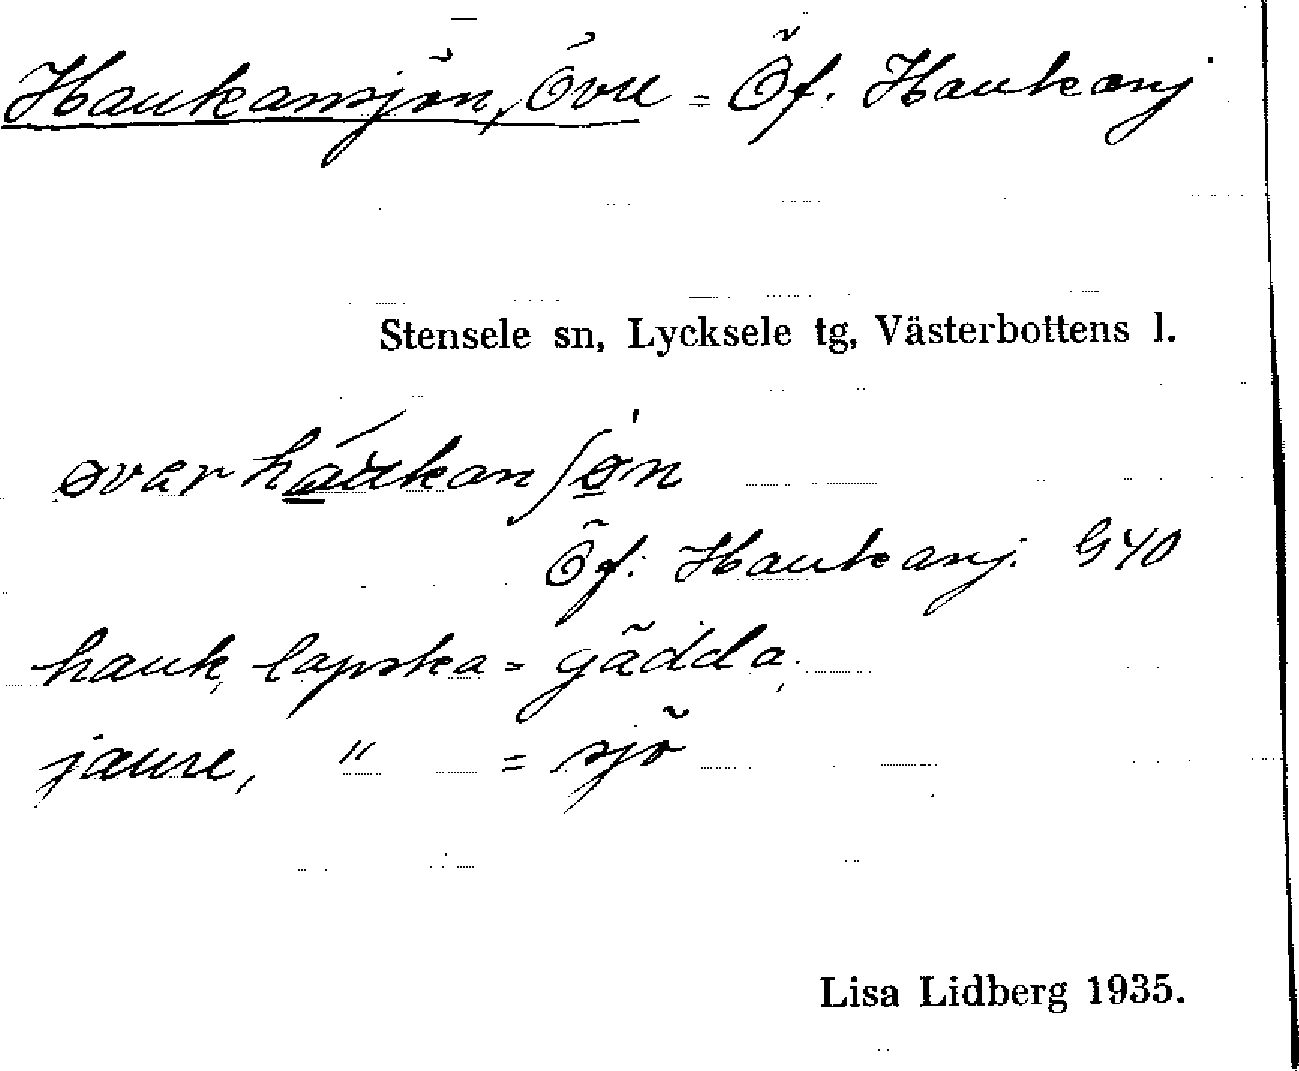 Haukansjön, Övre = Öf. Haukansj
Stensele sn, Lycksele tg, Västerbottens l.
øvarháukanʃø̱n
Öf. Haukansj. G40
hauk, lapska = gädda,
jaure, " = sjö
Lisa Lidberg 1935.